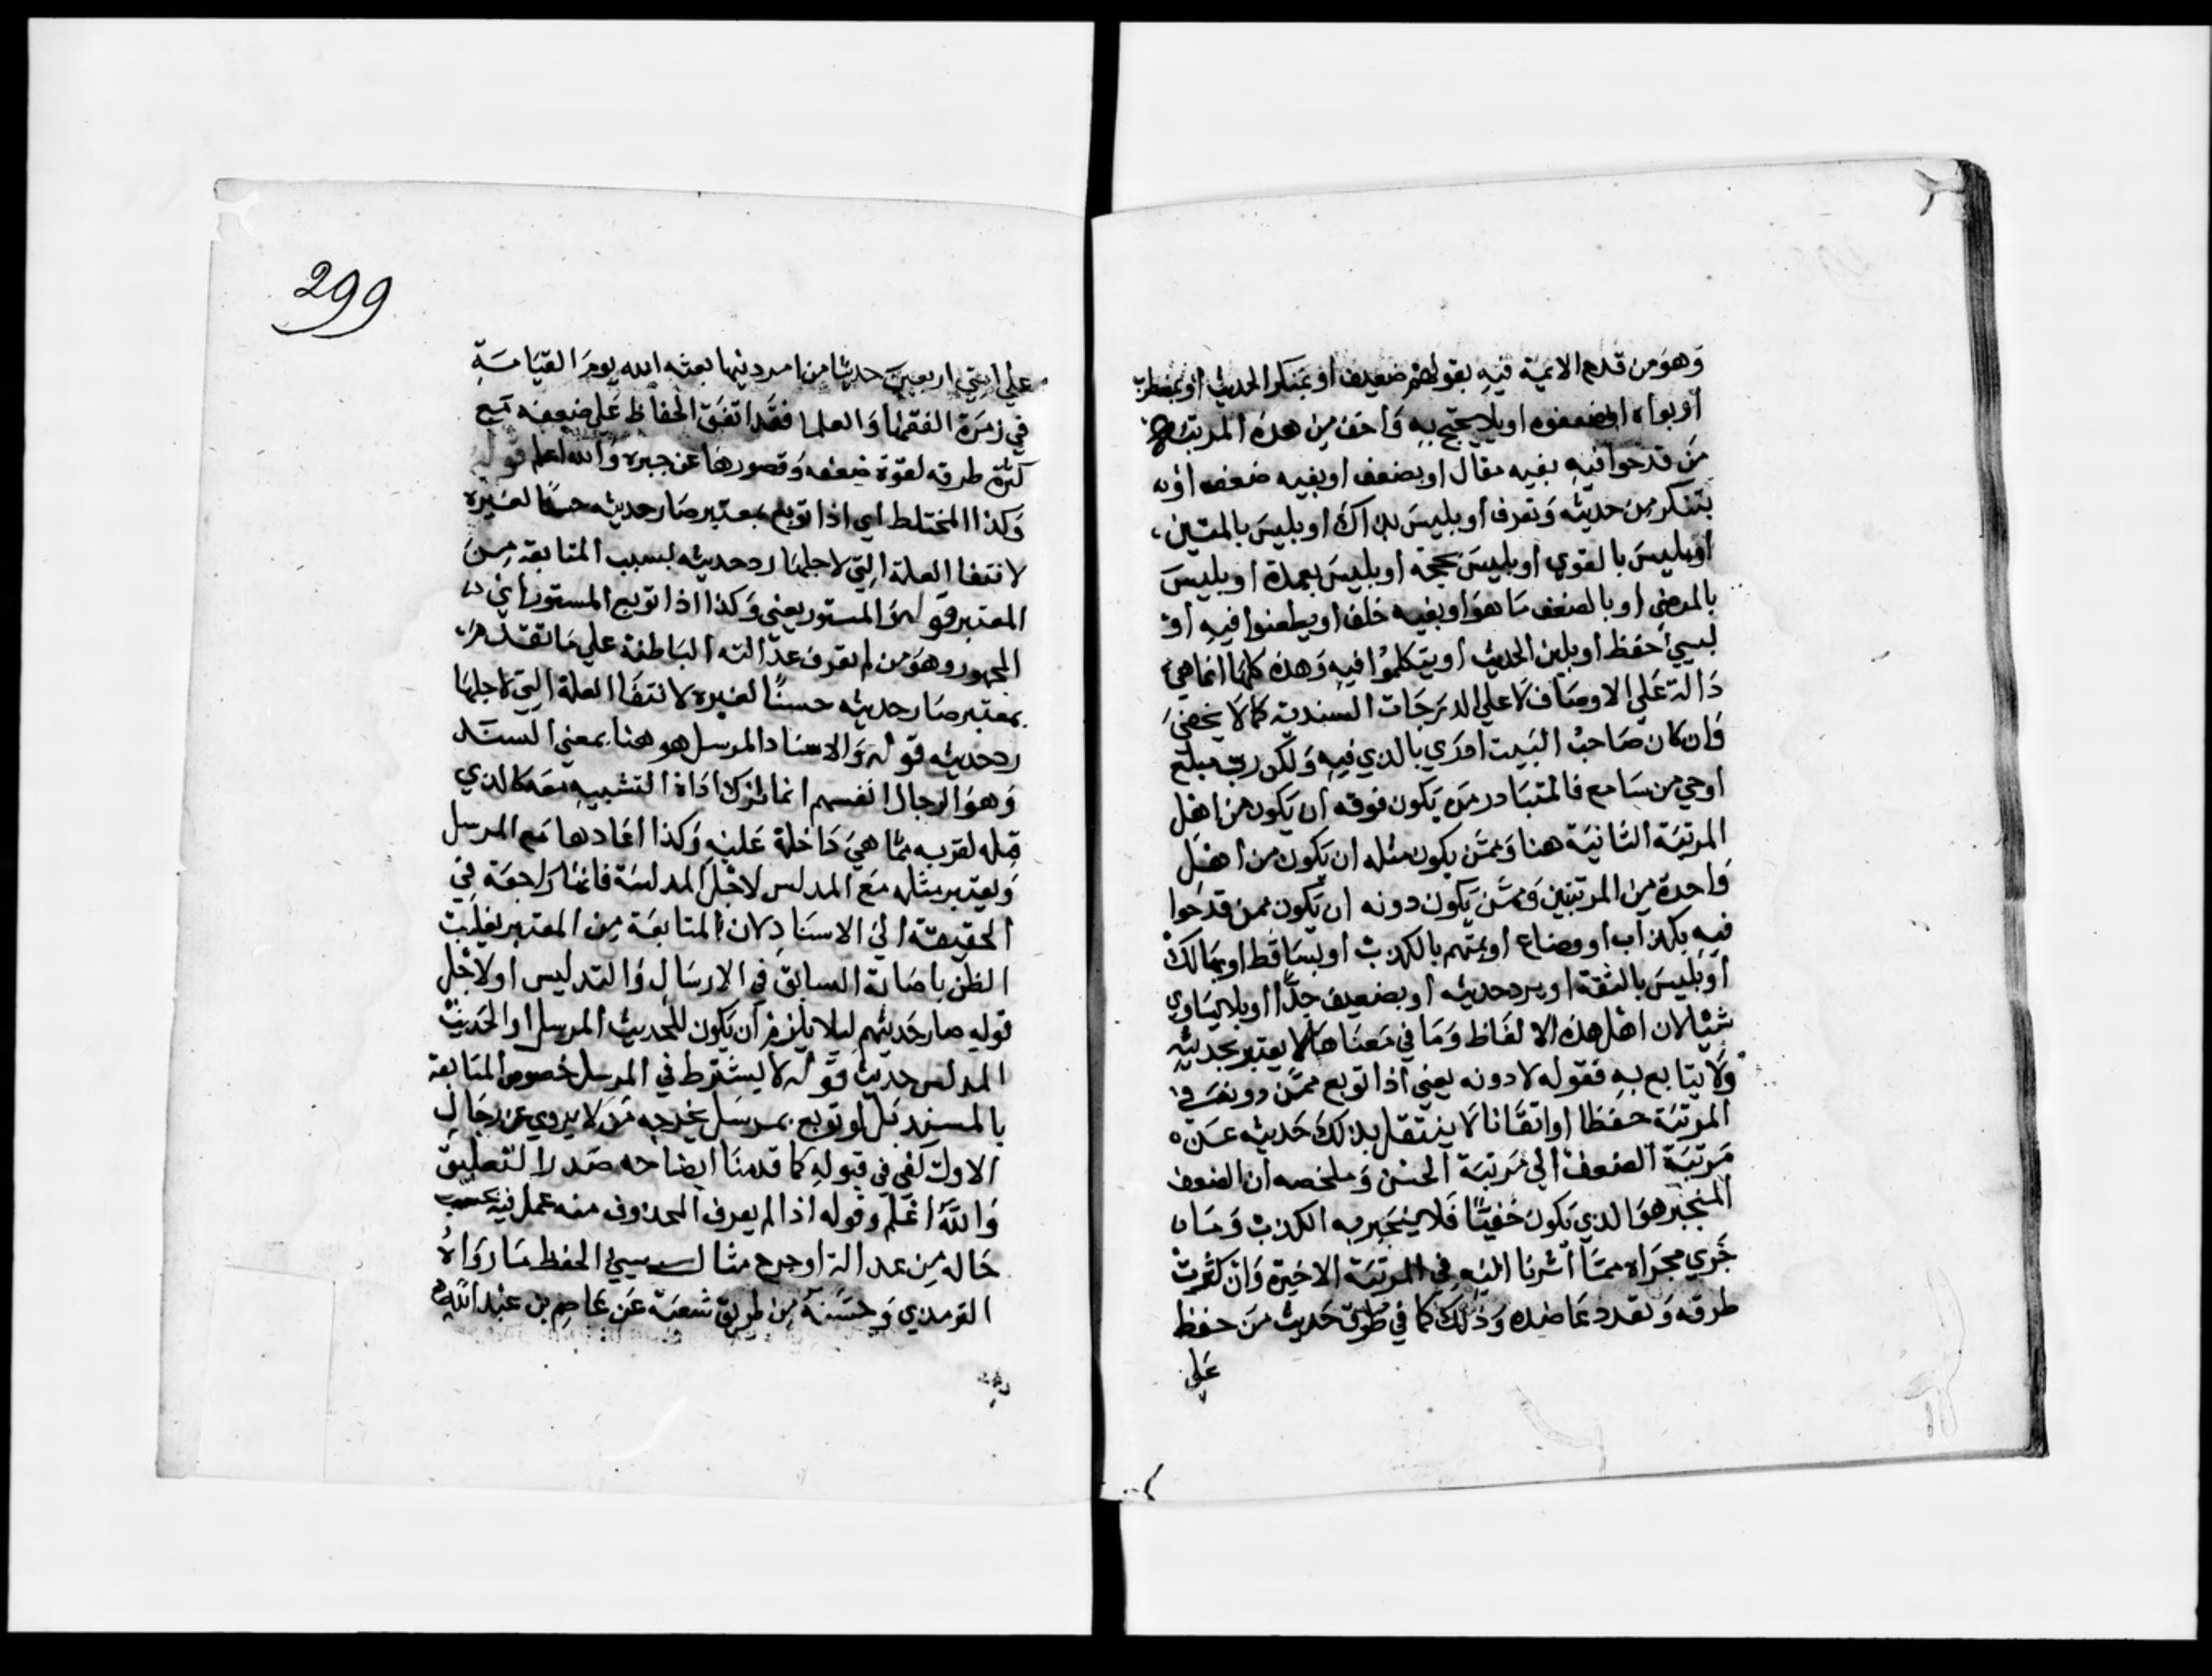 وهو من قدح الائمة فيه بقولهم ضعيف او بمنكر الحديث او بمضطربه
او بواه او ضعفوه او بلا يحتج به واخف من هذه المرتبة
من قدحوا فيه بفيه مقال او بضعف او بفيه ضعف او
بتنكر من حديثه وتعرف او بليس بذاك او بليس بالمتين
او بليس بالقوي او بليس بحجة او بليس بعمدة او بليس
بالمرضي او بالضعف ما هو او بفيه خلف او بطعنوا فيه او
بسيئ حفظ او بلين الحديث او بتكلموا فيه وهذه كلها انما هي
دالة على الاوصاف لا على الدرجات السندية كما لا يخفى
وان كان صاحب البيت ادري بالذي فيه ولكن رب مبلغ
اوعي من سامع فالمتبادر من يكون فوقه ان يكون من اهل
المرتبة الثانية هنا وممن يكون مثله ان يكون من اهل
واحدة من المرتبتين وممن يكون دونه ان يكون ممن قدحوا
فيه بكذاب او وضاع او بمتهم بالكذب او بساقط او بهالك
او بليس بالثقة او برد حديثه او بضعيف جدا او بلا يساوي
شيئا لان اهل هذه الالفاظ وما في معناها لا يعتبر بحديثه
ولا يتابع به فقوله لا دونه يعني اذا توبع ممن دونه في
المرتبة حفظا او اتقانا لا ينتقل بذلك حديثه عن
مرتبة الضعف الى مرتبة الحسن وملخصه ان الضعف
المنجبر هو الذي يكون خفيا فلا ينجبر به الكذب وما
جري مجراه مما اشرنا اليه في المرتبة الاخيرة وان كثرت
طرقه وتعدد عاضده وذلك كما في طرق حديث من حفظ
على
على امتي اربعين حديثا من امر دينها بعثه الله يوم القيامة
في زمرة الفقها والعلما فقد اتفق الحفاظ على ضعفه مع
كثرة طرقه لقوة ضعفه وقصورها عن جبره والله اعلم قوله
وكذا المختلط اي اذا توبع بمعتبر صار حديثه حسنا لغيره
لانتفا العلة التي لاجلها رد حديثه بسبب المتابعة من
المعتبر قوله والمستور يعني وكذا اذا توبع المستور اي
المجهور وهو من لم تعرف عدالته الباطنة علي ما تقدم
بمعتبر صار حديثه حسنا لغيره لانتفا العلة التي لاجلها
رد حديثه قوله والاسناد المرسل هو هنا بمعني السند
وهو الرجال انفسهم انما ترك اداة التشبيه معه كالذي
قبله لقربه مما هي داخلة عليه وكذا اعادها مع المرسل
ويعتبر مثله مع المدلس لاجل المدلسة فانها راجعة في
الحقيقة الى الاسناد لان المتابعة من المعتبر يغلب
الظن باصابة السابق في الارسال والتدليس او لاجل
قوله صار حديثهم ليلا يلزم ان يكون للحديث المرسل او الحديث
المدلس حديث قوله لا يشترط في المرسل خصوص المتابعة
بالمسند بل لو توبع بمرسل يخرجه من لا يروي عن رجال
الاول كفي في قبوله كما قدمنا ايضاحه صدر التعليق
والله اعلم وقوله اذا لم يعرف المحذوف منه عمل فيه بحسب
حاله من عدالة او جرح مثال سيئ الحفظ ما رواه
الترمذي وحسنه من طريق شعبة عن عاصم بن عبد الله
299